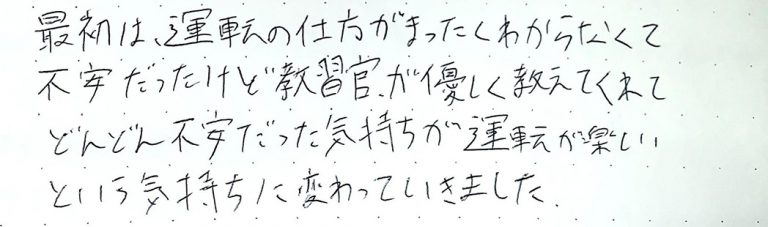 最初は、運転の仕方がまったくわからなくて
不安だったけど教習官が優しく教えてくれて
どんどん不安だった気持ちが運転が楽しい
という気持ちに変わっていきました.